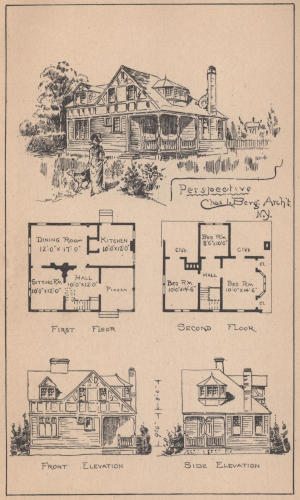 Perspective
Chas. I. Berg. Arch't
N.Y.
DINING ROOM
12'0" x 17'0"
KITCHEN
10'0"x12'0"
SITTING RM.
10'0"x12'0"
HALL
10'0"x12'0"
PIAZZA
FIRST FLOOR
BED RM.
8'6"x10'6"
CLO.
CLO.
HALL
BED RM.
10'0"x14'6"
BED RM.
10'0"x14'6"
CL.
CL.
SECOND FLOOR
FRONT ELEVATION
SIDE ELEVATION